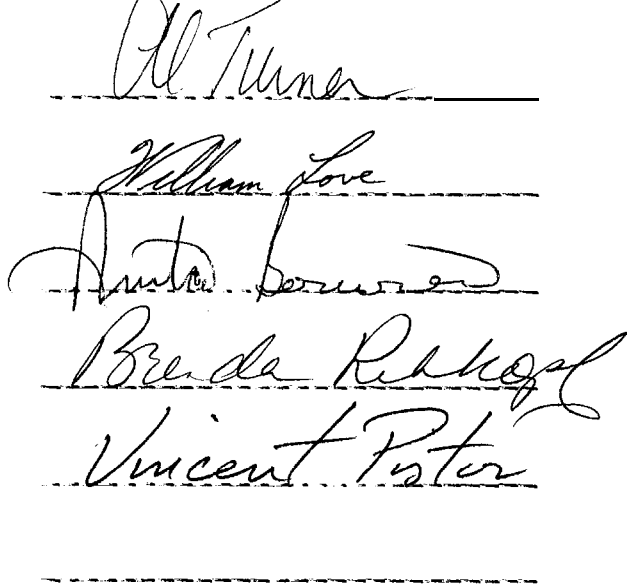 Al Turner
William Love
Anita
Brenda
Vincent Pistor